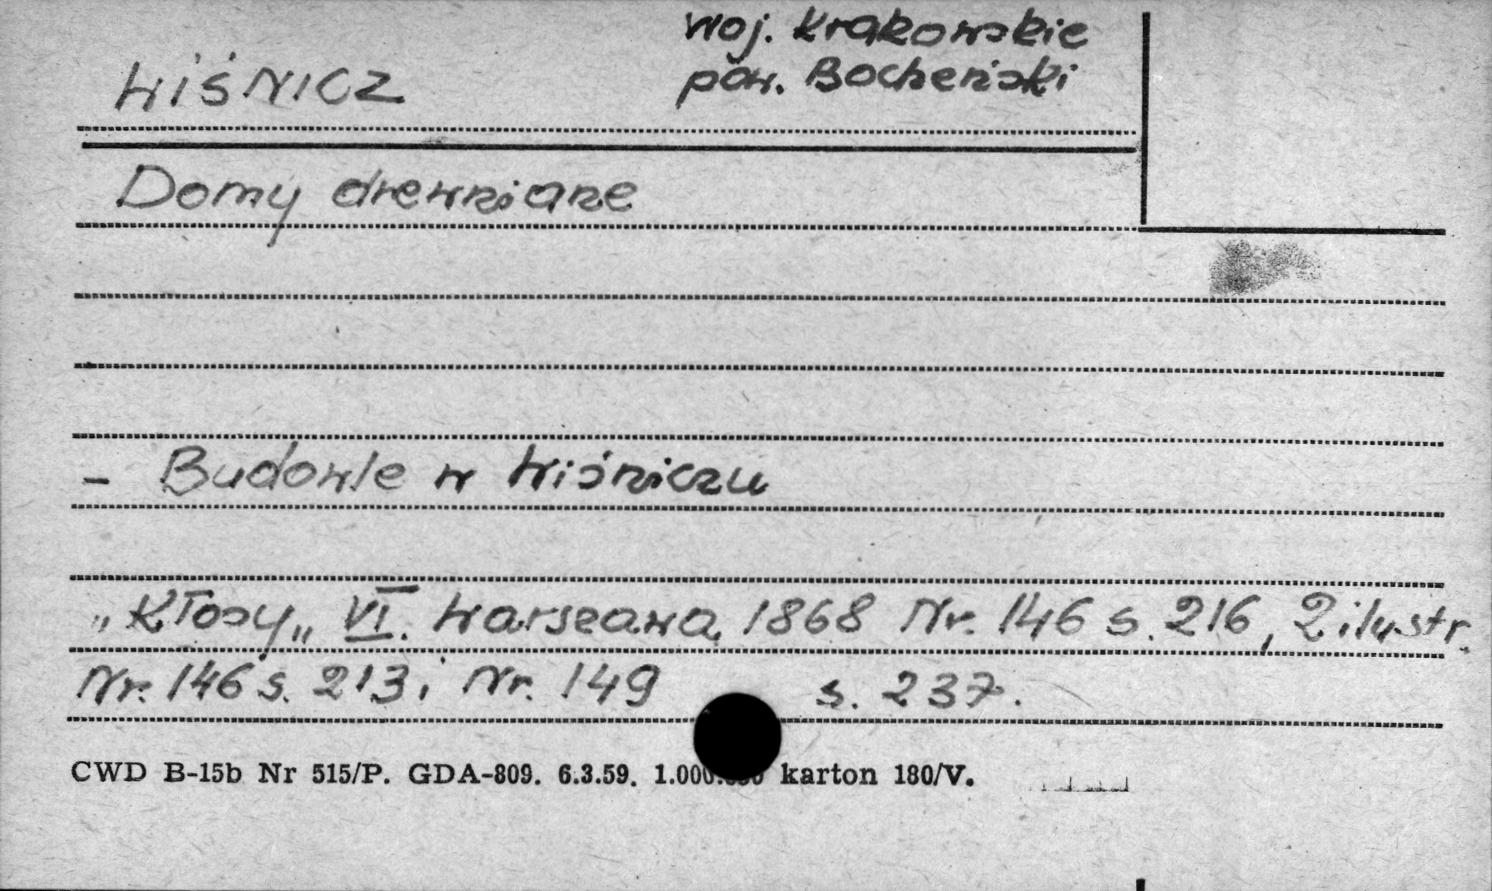 woj. Krakowskie
Wiśnicz pow. Bocheński
Domy drewniane
- Budowle w Wiśniczu
„Kłosy„ VI. Warszawa, 1868 Nr. 146 s. 216, 2 ilustr.
Nr. 146 s. 213 i Nr. 149 s. 237.
CWD B-15b Nr 515/P. GDA-809. 6.3.59. karton 180/V.